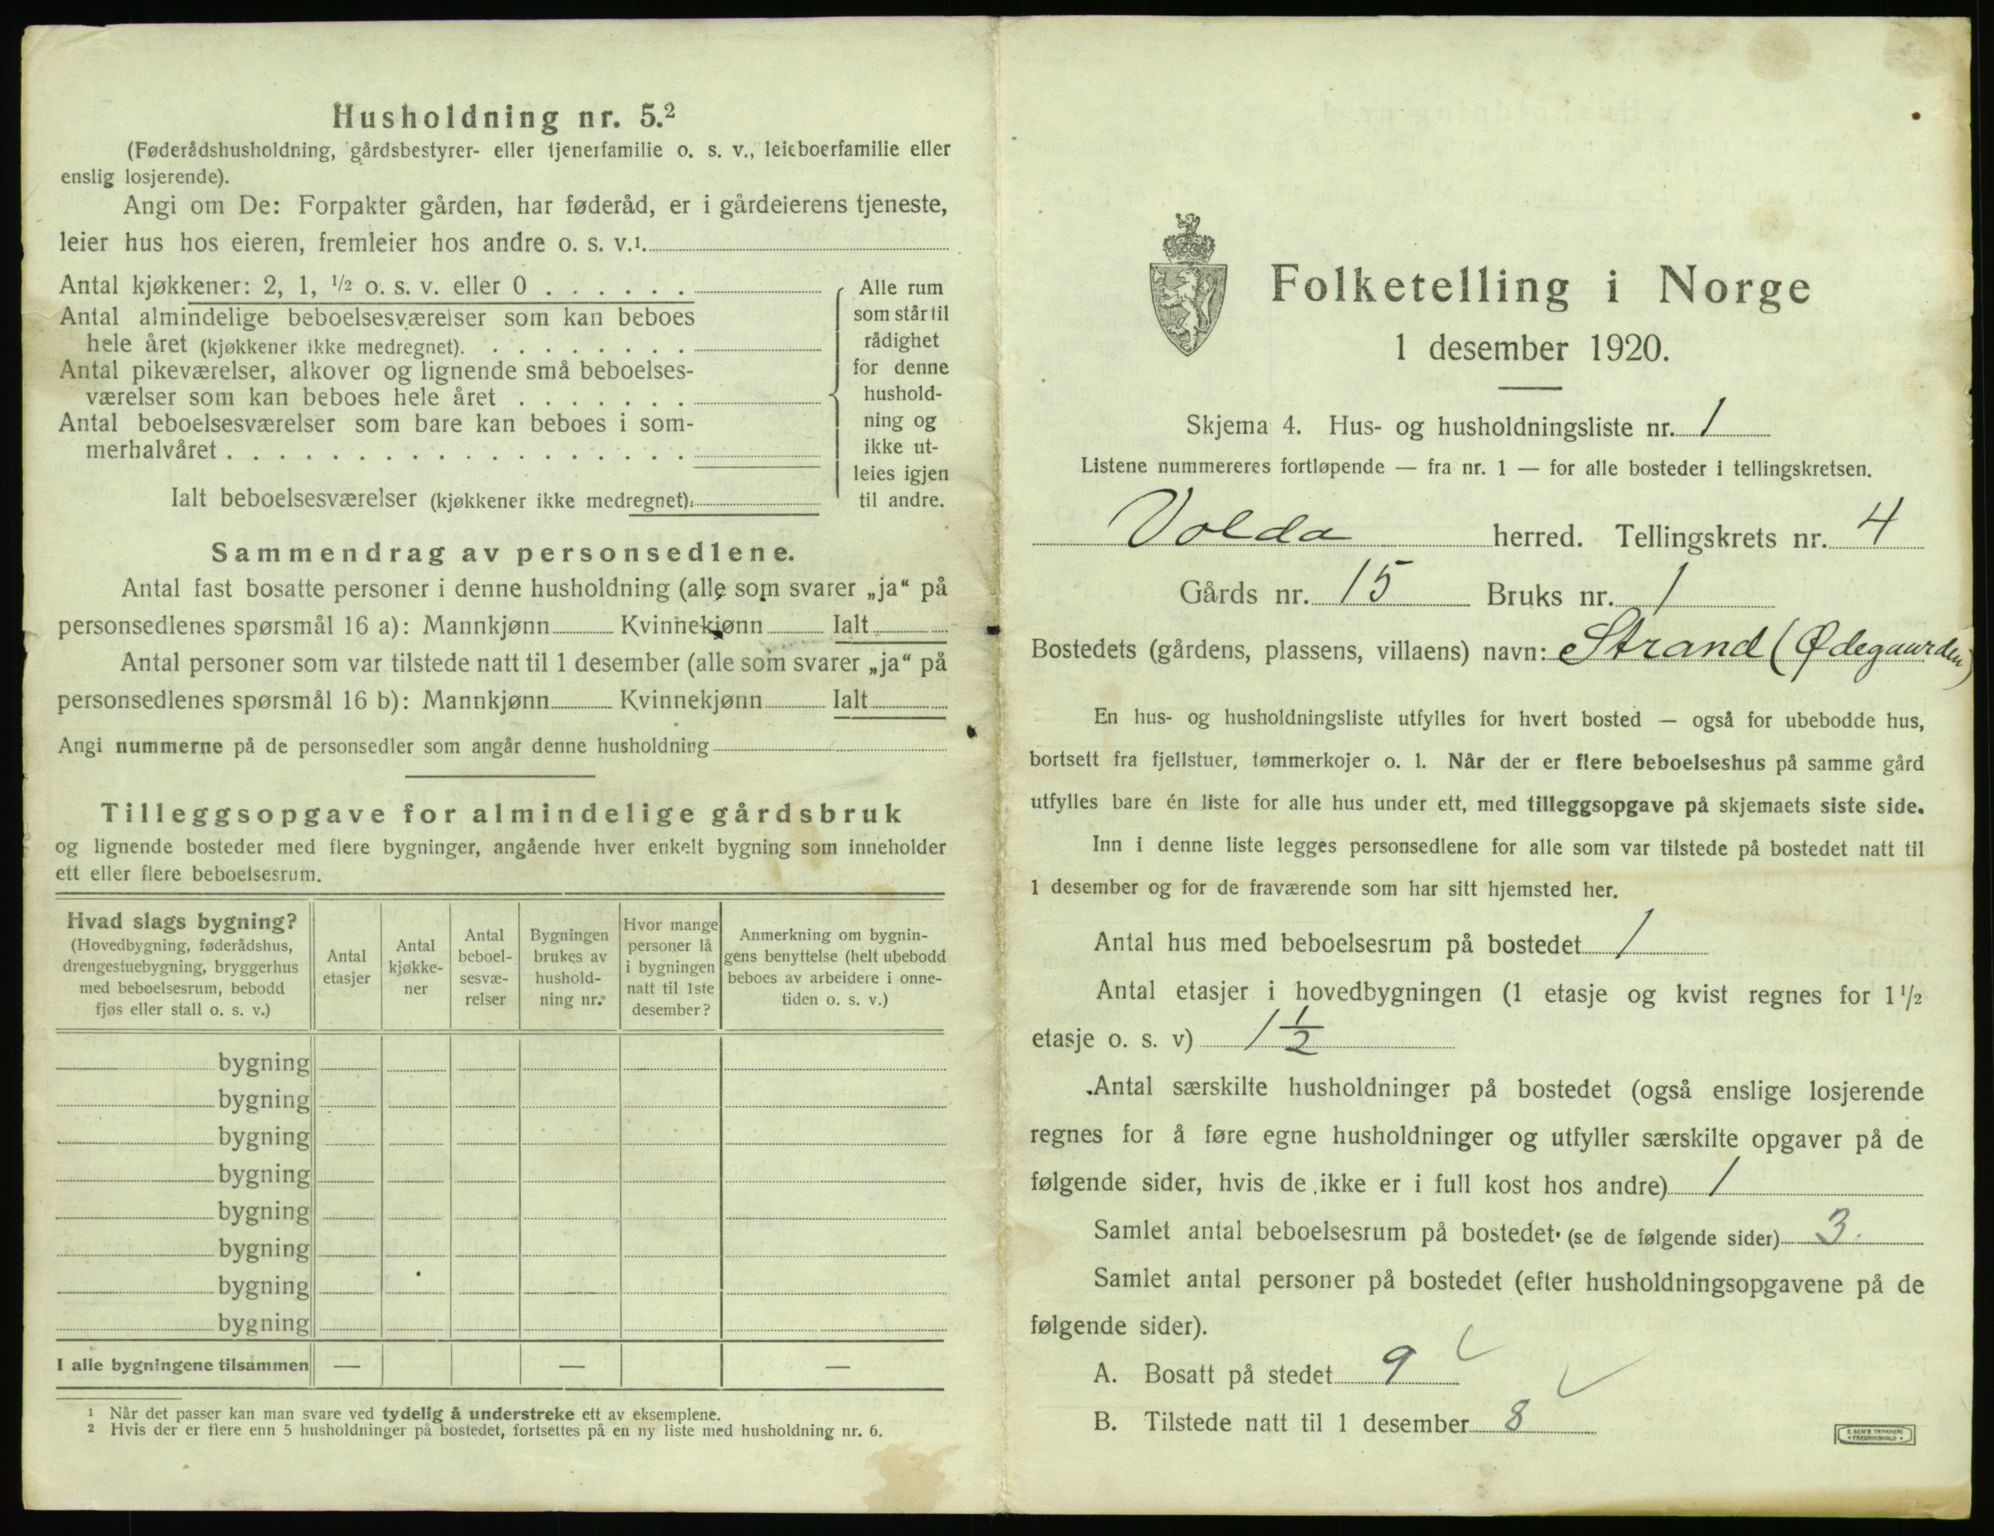 Husholdning nr. 5.²
(Føderådshusholdning, gårdsbestyrer- eller tjenerfamilie o. s. v., leieboerfamilie eller
enslig losjerende).
Angi om De: Forpakter gården, har føderåd, er i gårdeierens tjeneste,
leier hus hos eieren, fremleier hos andre o. s. v.¹.
Antal kjøkkener: 2, 1, ½ o. s. v. eller 0 . . . . . .
Antal almindelige beboelsesværelser som kan beboes
hele året (kjøkkener ikke medregnet). . . . . . . . .
Antal pikeværelser, alkover og lignende små beboelses-
værelser som kan beboes hele året . . . . . . .
Antal beboelsesværelser som bare kan beboes i som-
merhalvåret . . . . . . . . . . . . . . . . . .
Ialt beboelsesværelser (kjøkkener ikke medregnet).
Alle rum
som står til
rådighet
for denne
hushold-
ning og
ikke ut-
leies igjen
til andre.
Sammendrag av personsedlene.
Antal fast bosatte personer i denne husholdning (alle som svarer „ja“ på
personsedlenes spørsmål 16 a): Mannkjønn Kvinnekjønn Ialt
Antal personer som var tilstede natt til 1 desember (alle som svarer „ja“ på
personsedlenes spørsmål 16 b): Mannkjønn Kvinnekjønn Ialt
Angi nummerne på de personsedler som angår denne husholdning
Tilleggsopgave for almindelige gårdsbruk
og lignende bosteder med flere bygninger, angående hver enkelt bygning som inneholder
ett eller flere beboelsesrum.
Hvad slags bygning?
(Hovedbygning, føderådshus,
drengestuebygning, bryggerhus
med beboelsesrum, bebodd
fjøs eller stall o. s. v.)
Antal
etasjer
Antal
kjøkke-
ner
Antal
beboel-
sesvæ-
relser
Bygningen
brukes av
hushold-
ning nr.
Hvor mange
personer lå
i bygningen
natt til 1ste
desember?
Anmerkning om bygnin-
gens benyttelse (helt ubebodd
beboes av arbeidere i onne-
tiden o. s. v.)
bygning
bygning
bygning
bygning
bygning
bygning
bygning
bygning
I alle bygningene tilsammen — — —
¹ Når det passer kan man svare ved tydelig å understreke ett av eksemplene.
² Hvis der er flere enn 5 husholdninger på bostedet, fortsettes på en ny liste med husholdning nr. 6.
Folketelling i Norge
1 desember 1920.
Skjema 4. Hus- og husholdningsliste nr. 1
Listene nummereres fortløpende — fra nr. 1 — for alle bosteder i tellingskretsen.
Volda herred. Tellingskrets nr. 4
Gårds nr. 15 Bruks nr. 1
Bostedets (gårdens, plassens, villaens) navn: Strand (Ødegaarden)
En hus- og husholdningsliste utfylles for hvert bosted — også for ubebodde hus,
bortsett fra fjellstuer, tømmerkojer o. l. Når der er flere beboelseshus på samme gård
utfylles bare én liste for alle hus under ett, med tilleggsopgave på skjemaets siste side.
Inn i denne liste legges personsedlene for alle som var tilstede på bostedet natt til
1 desember og for de fraværende som har sitt hjemsted her.
Antal hus med beboelsesrum på bostedet 1
Antal etasjer i hovedbygningen (1 etasje og kvist regnes for 1½
etasje o. s. v) 1½
Antal særskilte husholdninger på bostedet (også enslige losjerende
regnes for å føre egne husholdninger og utfyller særskilte opgaver på de
følgende sider, hvis de ikke er i full kost hos andre) 1
Samlet antal beboelsesrum på bostedet (se de følgende sider) 3.
Samlet antal personer på bostedet (efter husholdningsopgavene på de
følgende sider).
A. Bosatt på stedet 9 ✓
B. Tilstede natt til 1 desember 8 ✓
E. SEM'S TRYKKERI
FREDRIKSHALD